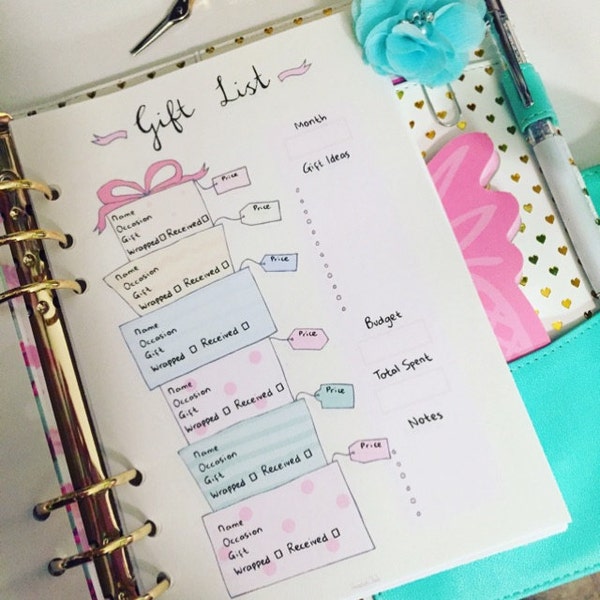 Gift List
Month
Gift Ideas
Price
Name
Occasion
Gift
Wrapped Received
Price
Name
Occasion
Gift
Wrapped Received
Price
Name
Occasion
Gift
Wrapped Received
Price
Name
Occasion
Gift
Wrapped Received
Price
Name
Occasion
Gift
Wrapped Received
Price
Name
Occasion
Gift
Wrapped Received
Budget
Total Spent
Notes